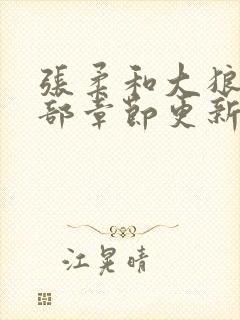 張柔和大狼
部章節更新
江晃晴